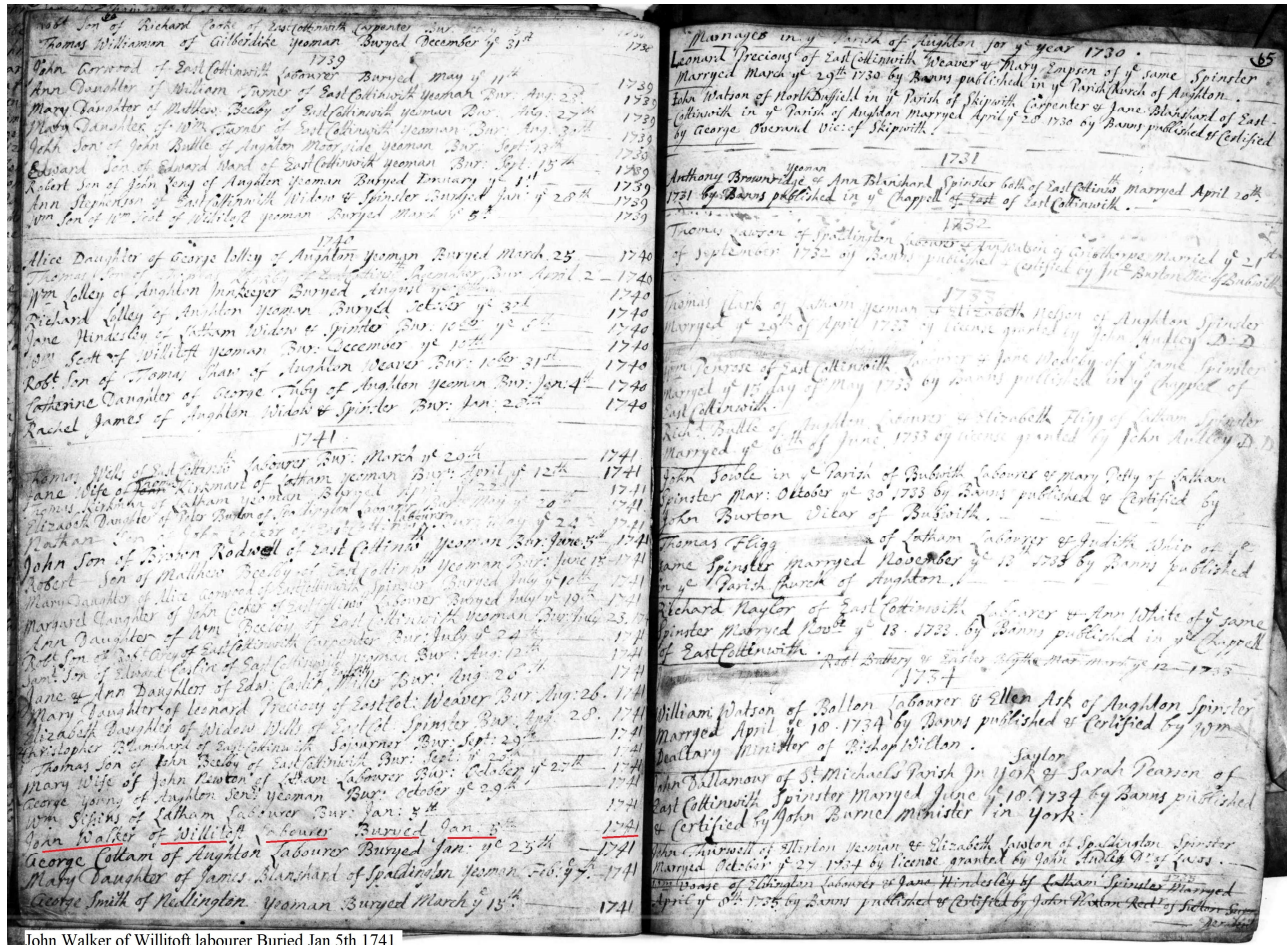 Robt Son of Richard Cooke of East Cottinwith Carpenter Bur
Thomas Williamman of Gilberdike yeoman Buryed December ye 31st 1738
1739
John Gorwood of East Cottinwith Labourer Buryed May ye 11th 1739
Ann Daughter of William Turner of East Cottinwith yeoman Bur: Aug: 1739
Mary Daughter of Matthew Beeby of East Cottinwith yeoman Bur 27th 1739
Mary Daughter of Wm Turner of East Cottinwith yeoman Bur: Aug: 1739
John Son of John Buttle of Aughton Moorside yeoman Bur: Sept: 13th 1739
Edward Son of Edward Ward of East Cottinwith yeoman Bur: Sept: 15th 1739
Robert Son of John Leng of Aughton yeoman Buryed ye 1st 1739
Ann Stephenson of East Cottinwith Widow & Spinster Buryed Jan: ye 28th 1739
Wm Son of Wm of Willitoft yeoman Buryed March ye 5th 1739
1740
Alice Daughter of George Lolley of Aughton yeoman Buryed March 25 1740
Thomas Son of Bur April 2 1740
Wm Lolley of Aughton Innkeeper Buryed August 1740
Richard Lolley of Aughton yeoman Buryed October ye 3d 1740
Jane Hindesley of Latham Widow & Spinster Bur: 10br ye 5th 1740
Wm Scott of Willitoft yeoman Bur: December ye 10th 1740
Robt Son of Thomas Shaw of Aughton Weaver Bur: 10ber 31st 1740
Catherine Daughter of George Tuby of Aughton yeoman Bur: Jan: 4th 1740
Rachel James of Aughton Widow & Spinster Bur: Jan: 28th 1740
1741
Thomas Wells of East Cottinwith Labourer Bur: March ye 29th 1741
Jane Wife of Thomas Kirkman of Lotham yeoman Bur: April ye 12th 1741
Thomas Kirkman of Latham yeoman Buryed 22d 1741
Elizabeth Daughter of Peter Burton of Spaldington Labourer Bur May ye 20th 1741
Nathan Son of Labourer Bur: May ye 24 1741
John Son of Rodwel of East Cottinwith yeoman Bur: June 3d 1741
Robert Son of Matthew Beeby of East Cottinwith yeoman Bur: June 13 1741
Mary Daughter of Alice Gorwood of East Cottinwith Spinster Buryed July ye 10th 1741
Margaret Daughter of John Cocker of East Cottinwith Labourer Buryed July ye 19th 1741
Ann Daughter of Wm Beeby of East Cottinwith yeoman Bur: July 23 17
Robt Son of of East Cottinwith Carpenter Bur: July ye 24th 1741
Saml Son of Edward Caslin of East Cottinwith yeoman Bur: Aug: 12th 1741
Jane & Ann Daughters of Edwd Caslin Miller Bur: Aug: 20 1741
Mary Daughter of Leonard Precious of East Cot: Weaver Bur Aug: 26 1741
Elizabeth Daughter of Widow Wells of East Cot Spinster Bur: Aug: 28 1741
Christopher Blanchard of East Cottinwith Bur: Sept: 29th 1741
Thomas Son of John Beeby of East Cottinwith Bur: Sept: 1741
Mary Wife of John Newton of Latham Labourer Bur: October ye 27th 1741
George Young of Aughton Senr yeoman Bur: October ye 29th 1741
Wm of Latham Labourer Bur: Jan: 5th 1741
John Walker of Willitoft Labourer Buryed Jan: 5th 1741
George Collam of Aughton Labourer Buryed Jan: ye 25th 1741
Mary Daughter of James Blanshard of Spaldington yeoman Feb: ye 7 1741
George Smith of Nedlington yeoman Buryed March ye 15th 1741
John Walker of Willitoft labourer Buried Jan 5th 1741
65
Marriages in ye Parish of Aughton for ye year 1730
Leonard Precious of East Cottinwith Weaver & Mary Empson of ye same Spinster
Marryed March ye 29th 1730 by Banns published in ye Parish Church of Aughton
John Watson of North Duffield in ye Parish of Skipwith Carpenter & Jane Blanshard of East-
Cottinwith in ye Parish of Aughton marryed April ye 20 1730 by Banns published & Certified
by George Overand Vic: of Skipwith
1731
yeoman
Anthony Brownridge & Ann Blanshard Spinster both of East Cottinwth Marryed April 20th
1731 by Banns published in ye Chappell of East of East Cottinwith
1732
Thomas Lawson of Spaldington Labourer & of Gribthorpe Married ye 21st
of September 1732 by Banns published Certified by Jno Burton Vic of Bubwith
1733
Thomas Clark of Latham yeoman & Elizabeth Nelson of Aughton Spinster
Marryed ye 29th of April 1733 by license granted by John Audley D:D
Wm Penrose of East Cottinwith Labourer & Jane of ye same Spinster
Marryed ye 13 day of May 1733 by Banns published in ye Chappel of
East Cottinwith
Richd Buttle of Aughton Labourer & Elizabeth Fligg of Latham Spinster
Marryed ye 6th of June 1733 by license granted by John Audley D.D
John Towle in ye Parish of Bubwith Labourer & Mary Petty of Latham
Spinster Mar: October ye 30 1733 by Banns published & Certified by
John Burton Vicar of Bubwith
Thomas Fligg of Latham Labourer & Judith of ye
same Spinster Marryed November ye 13 1733 by Banns published
in ye Parish Church of Aughton
Richard Naylor of East Cottinwith Labourer & Ann White of ye same
Spinster Marryed Novbr ye 18 1733 by Banns published in ye Chappell
of East Cottinwith
Robt Buttery & Easter Blyth Mar March ye 12 1733
1734
William Watson of Bolton Labourer & Ellen Ask of Aughton Spinster
Marryed April ye 18 1734 by Banns published & Certified by Wm
Dealtary Minister of Bishop Wilton
Saylor
John Dallamour of St Michaels Parish In York & Sarah Pearson of
East Cottinwith Spinster Marryed June ye 18 1734 by Banns published
& Certified by John Burne Minister in York
John Thurswell of Ellerton yeoman & Elizabeth Lawton of Spaldington Spinster
Marryed October ye 27 1734 by license granted by John Audley Dr of Laws
1735
of Labourer & Jane Hindesley of Latham Spinster Marryed
April ye 8th 1735 by Banns published & Certified by John Rector of Sutton